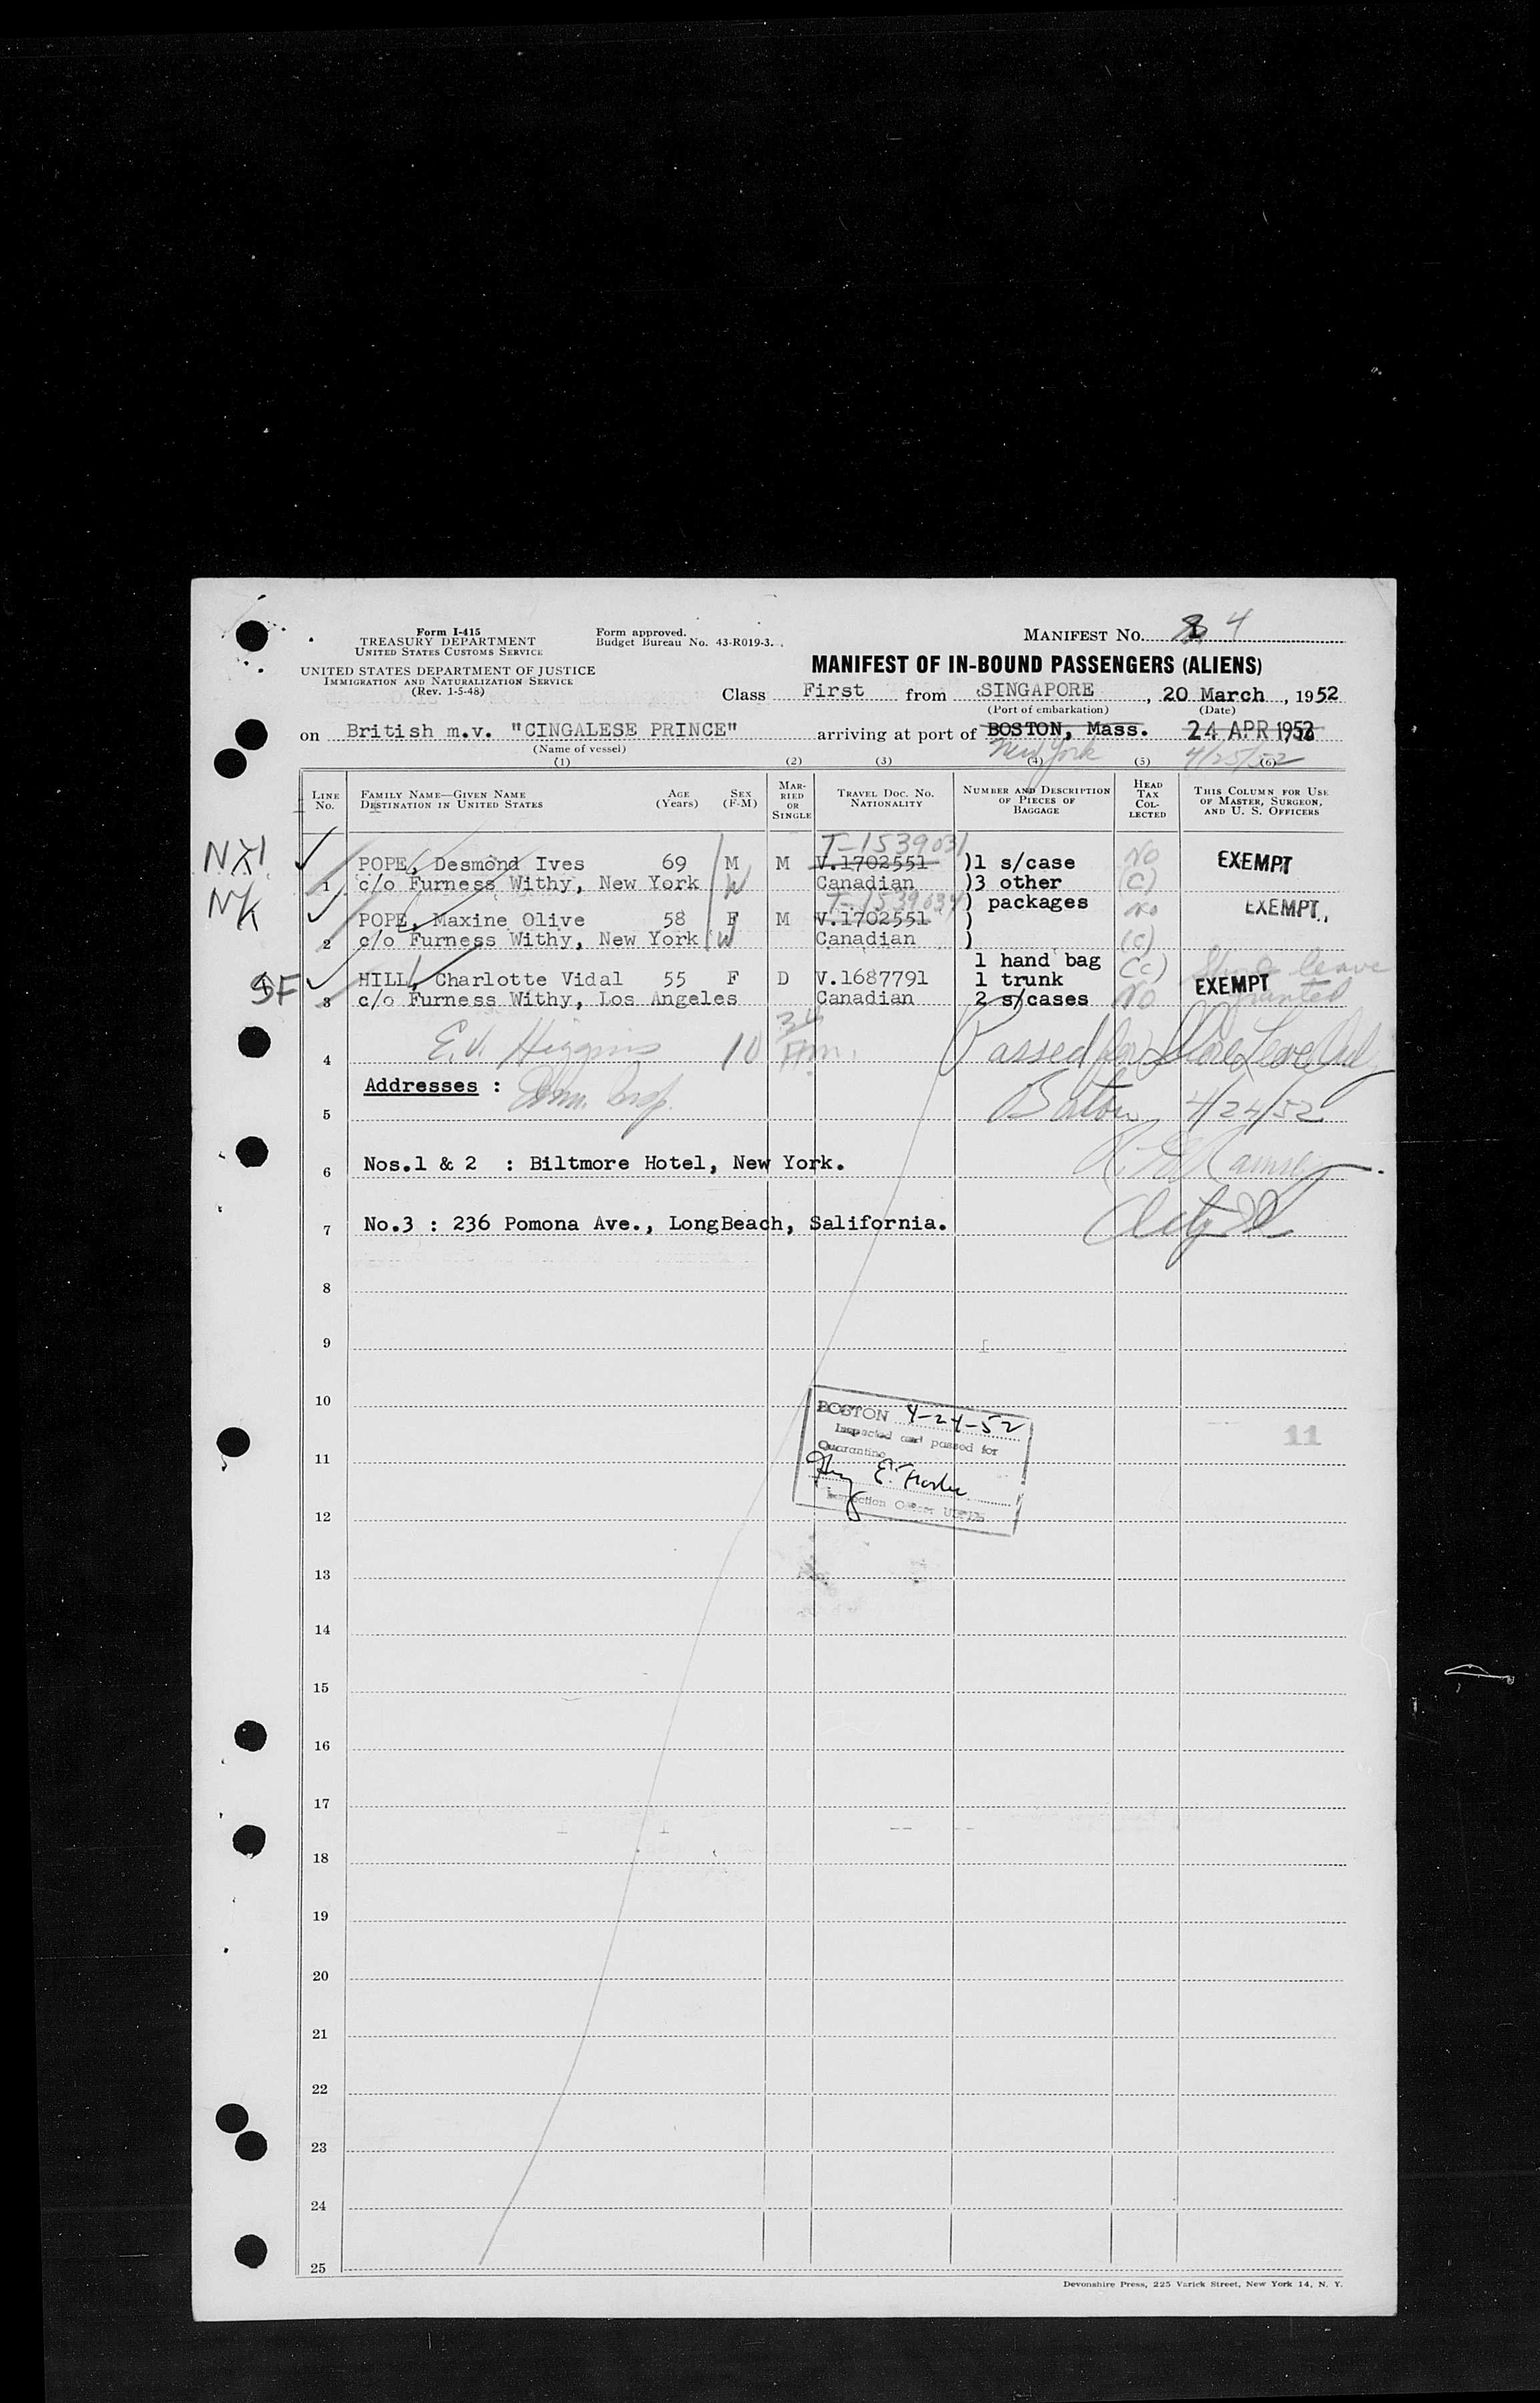 Form I-415
TREASURY DEPARTMENT
UNITED STATES CUSTOMS SERVICE
Form approved.
Budget Bureau No. 43-R019-3.
MANIFEST NO. 4
UNITED STATES DEPARTMENT OF JUSTICE
IMMIGRATION AND NATURALIZATION SERVICE
(Rev. 1-5-48)
MANIFEST OF IN-BOUND PASSENGERS (ALIENS)
Class First from SINGAPORE, 20 March, 1952
(Port of embarkation) (Date)
on British m.v. "CINGALESE PRINCE" arriving at port of BOSTON, Mass. 24 APR 1952
(Name of vessel) New York 4/25/52
(1) (2) (3) (4) (5) (6)
LINE NO. FAMILY NAME—GIVEN NAME DESTINATION IN UNITED STATES AGE (Years) SEX (F-M) MARRIED OR SINGLE TRAVEL DOC. NO. NATIONALITY NUMBER AND DESCRIPTION OF PIECES OF BAGGAGE HEAD TAX COLLECTED THIS COLUMN FOR USE OF MASTER, SURGEON, AND U. S. OFFICERS
T-1539031
POPE, Desmond Ives 69 M M V.1702551 )1 s/case No EXEMPT
1 c/o Furness Withy, New York W Canadian )3 other (C)
T-1539034 ) packages
POPE, Maxine Olive 58 F M V.1702551 ) No EXEMPT
2 c/o Furness Withy, New York W Canadian ) (C)
1 hand bag (C) Shore leave
SF HILL, Charlotte Vidal 55 F D V.1687791 1 trunk EXEMPT granted
3 c/o Furness Withy, Los Angeles Canadian 2 s/cases NO
4 E.V. Higgins 10 Passed for Shore Leave Only
Addresses :
5 Boston 4/24/52
6 Nos.1 & 2 : Biltmore Hotel, New York.
7 No.3 : 236 Pomona Ave., LongBeach, Salifornia.
8
9
10
BOSTON 4-24-52
Inspected and passed for
Quarantine
11 11
Inspection Officer
12
13
14
15
16
17
18
19
20
21
22
23
24
25
Devonshire Press, 225 Varick Street, New York 14, N. Y.